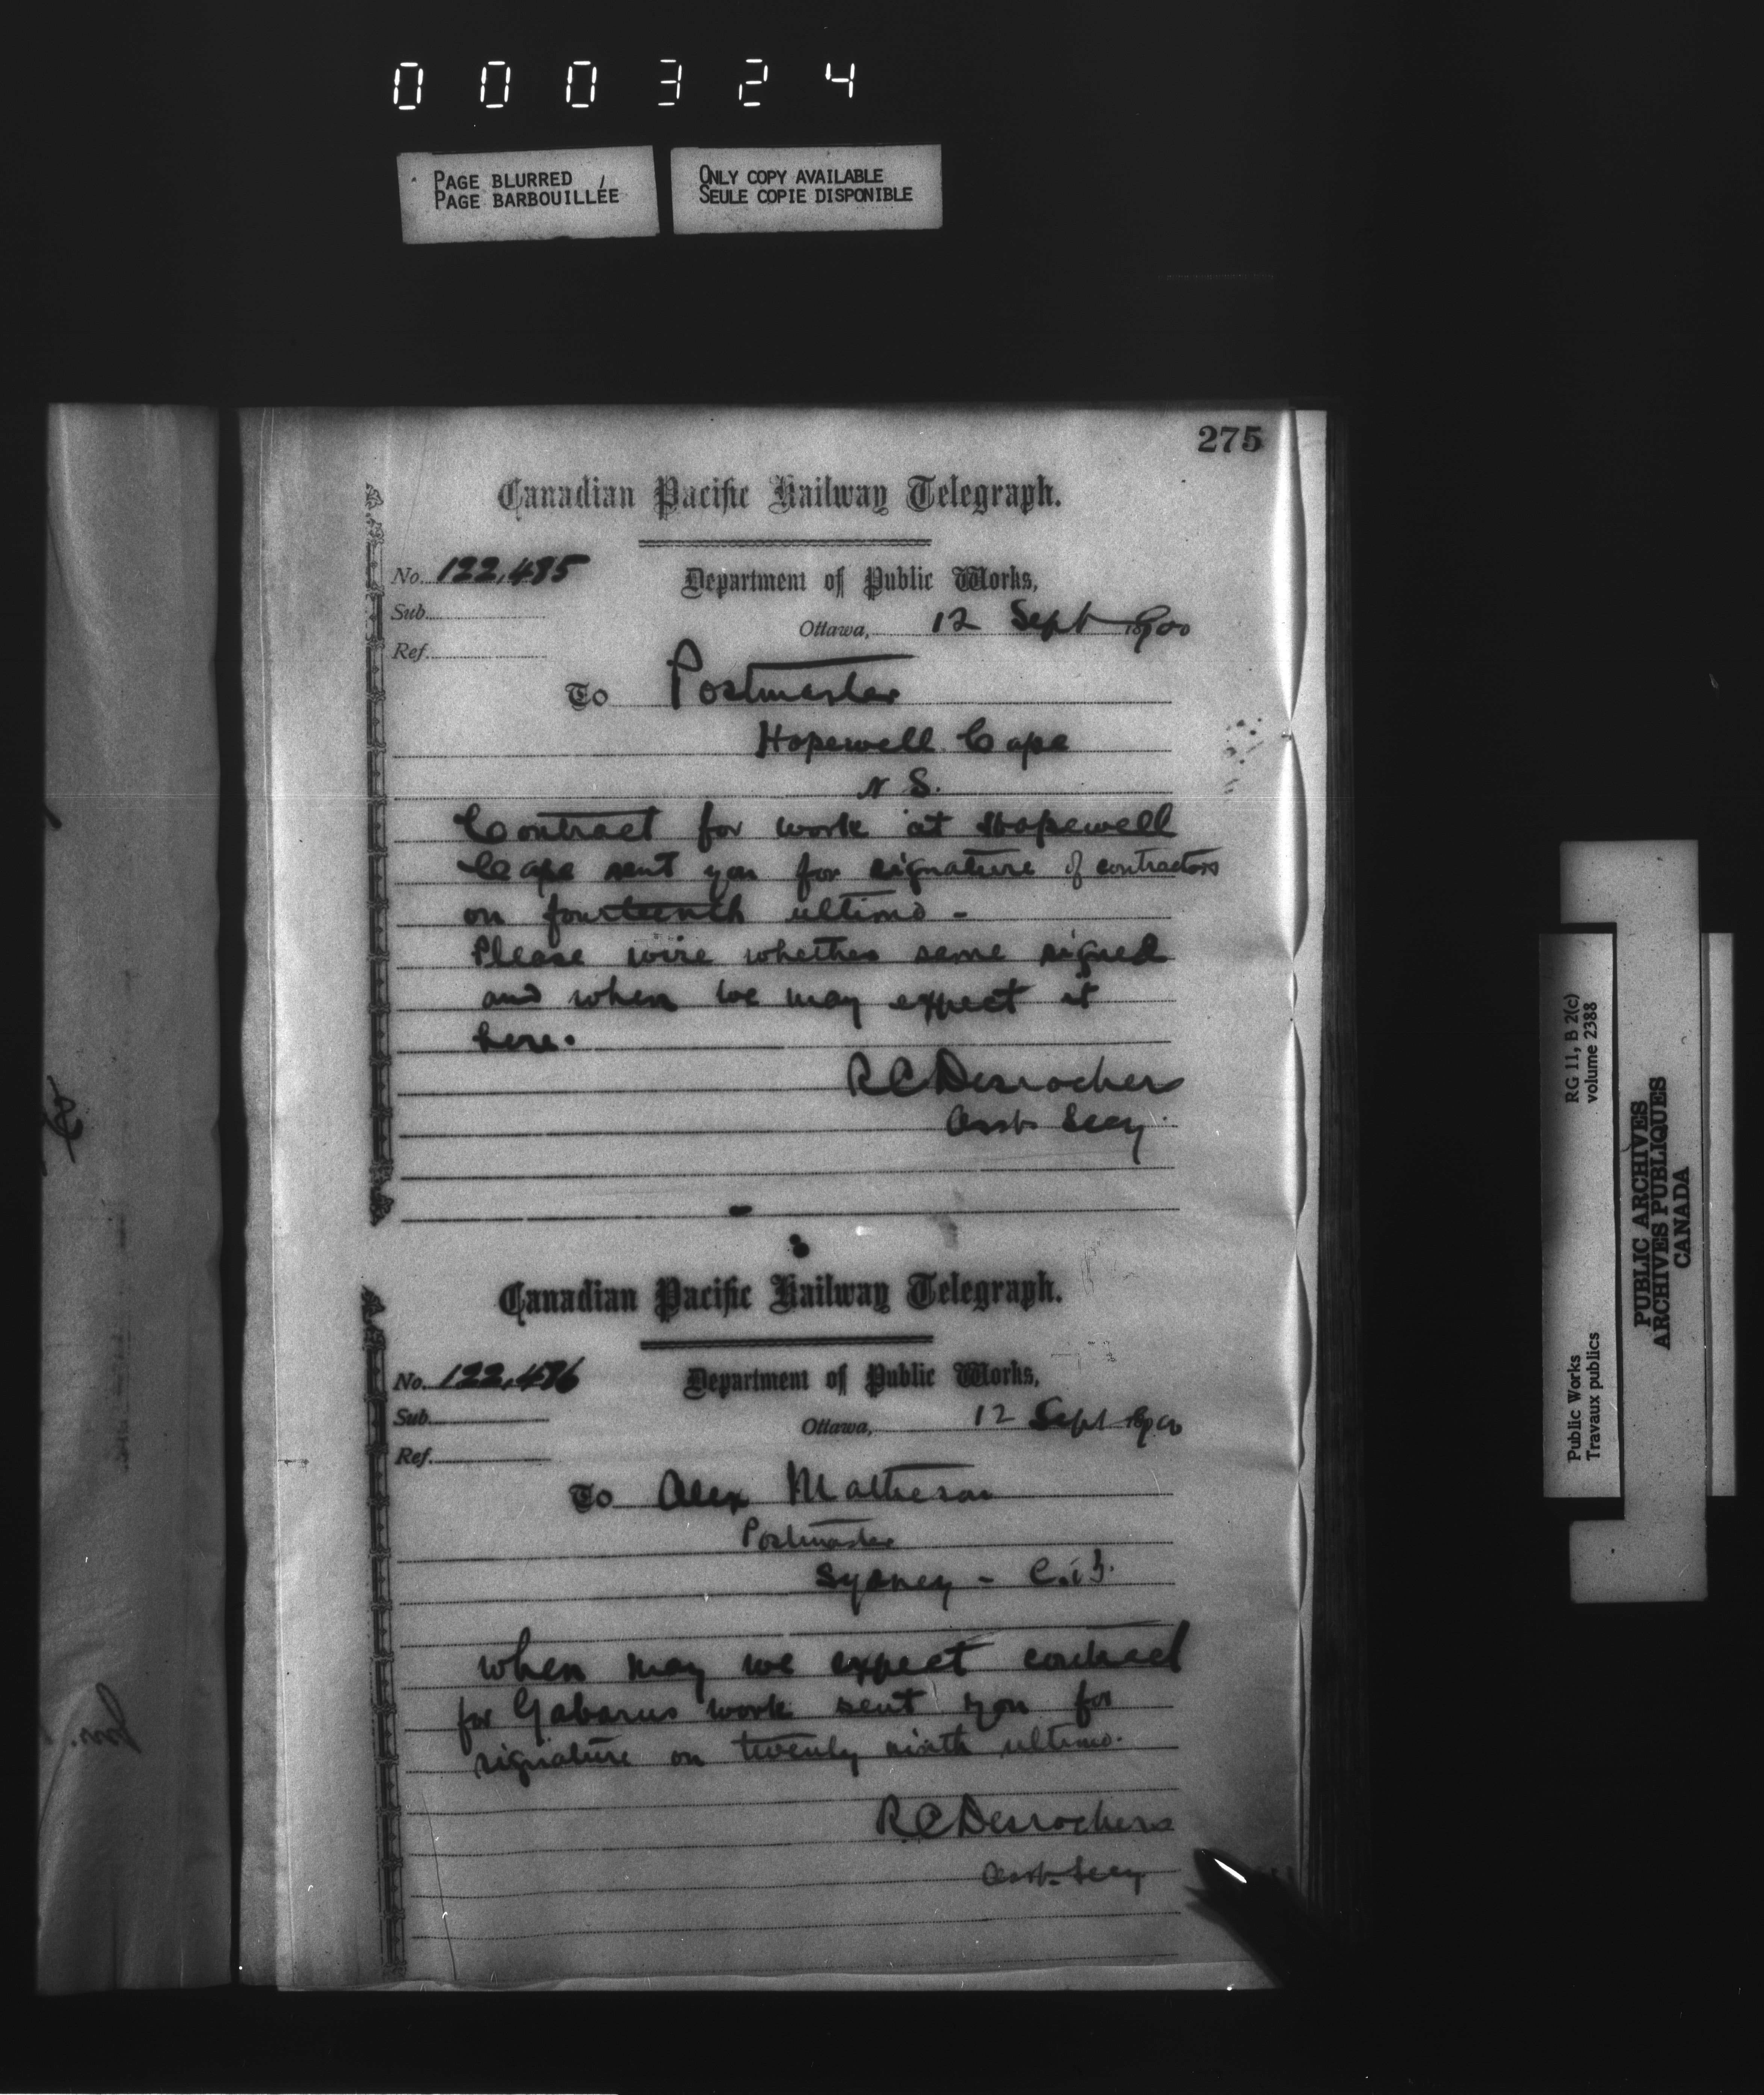 000324
PAGE BLURRED
PAGE BARBOUILLÉE
ONLY COPY AVAILABLE
SEULE COPIE DISPONIBLE
275
Canadian Pacific Railway Telegraph.
No. 122,485
Department of Public Works,
Sub.
Ottawa, 12 Sept 1900
Ref.
To Postmaster
Hopewell Cape
N S.
Contract for work at Hopewell
Cape sent you for signature of contractors
on fourteenth ultimo -
Please wire whether same signed
and when we may expect it
here.
R C Desrochers
Asst Secy
Canadian Pacific Railway Telegraph.
No. 122,486
Department of Public Works,
Sub.
Ottawa, 12 Sept 1900
Ref.
To Alex Matheson
Postmaster
Sydney - C.B.
When may we expect contract
for Gabarus work sent you for
signature on twenty ninth ultimo.
R C Desrochers
Asst Secy
RG 11, B 2(c)
volume 2388
Public Works
Travaux publics
PUBLIC ARCHIVES
ARCHIVES PUBLIQUES
CANADA